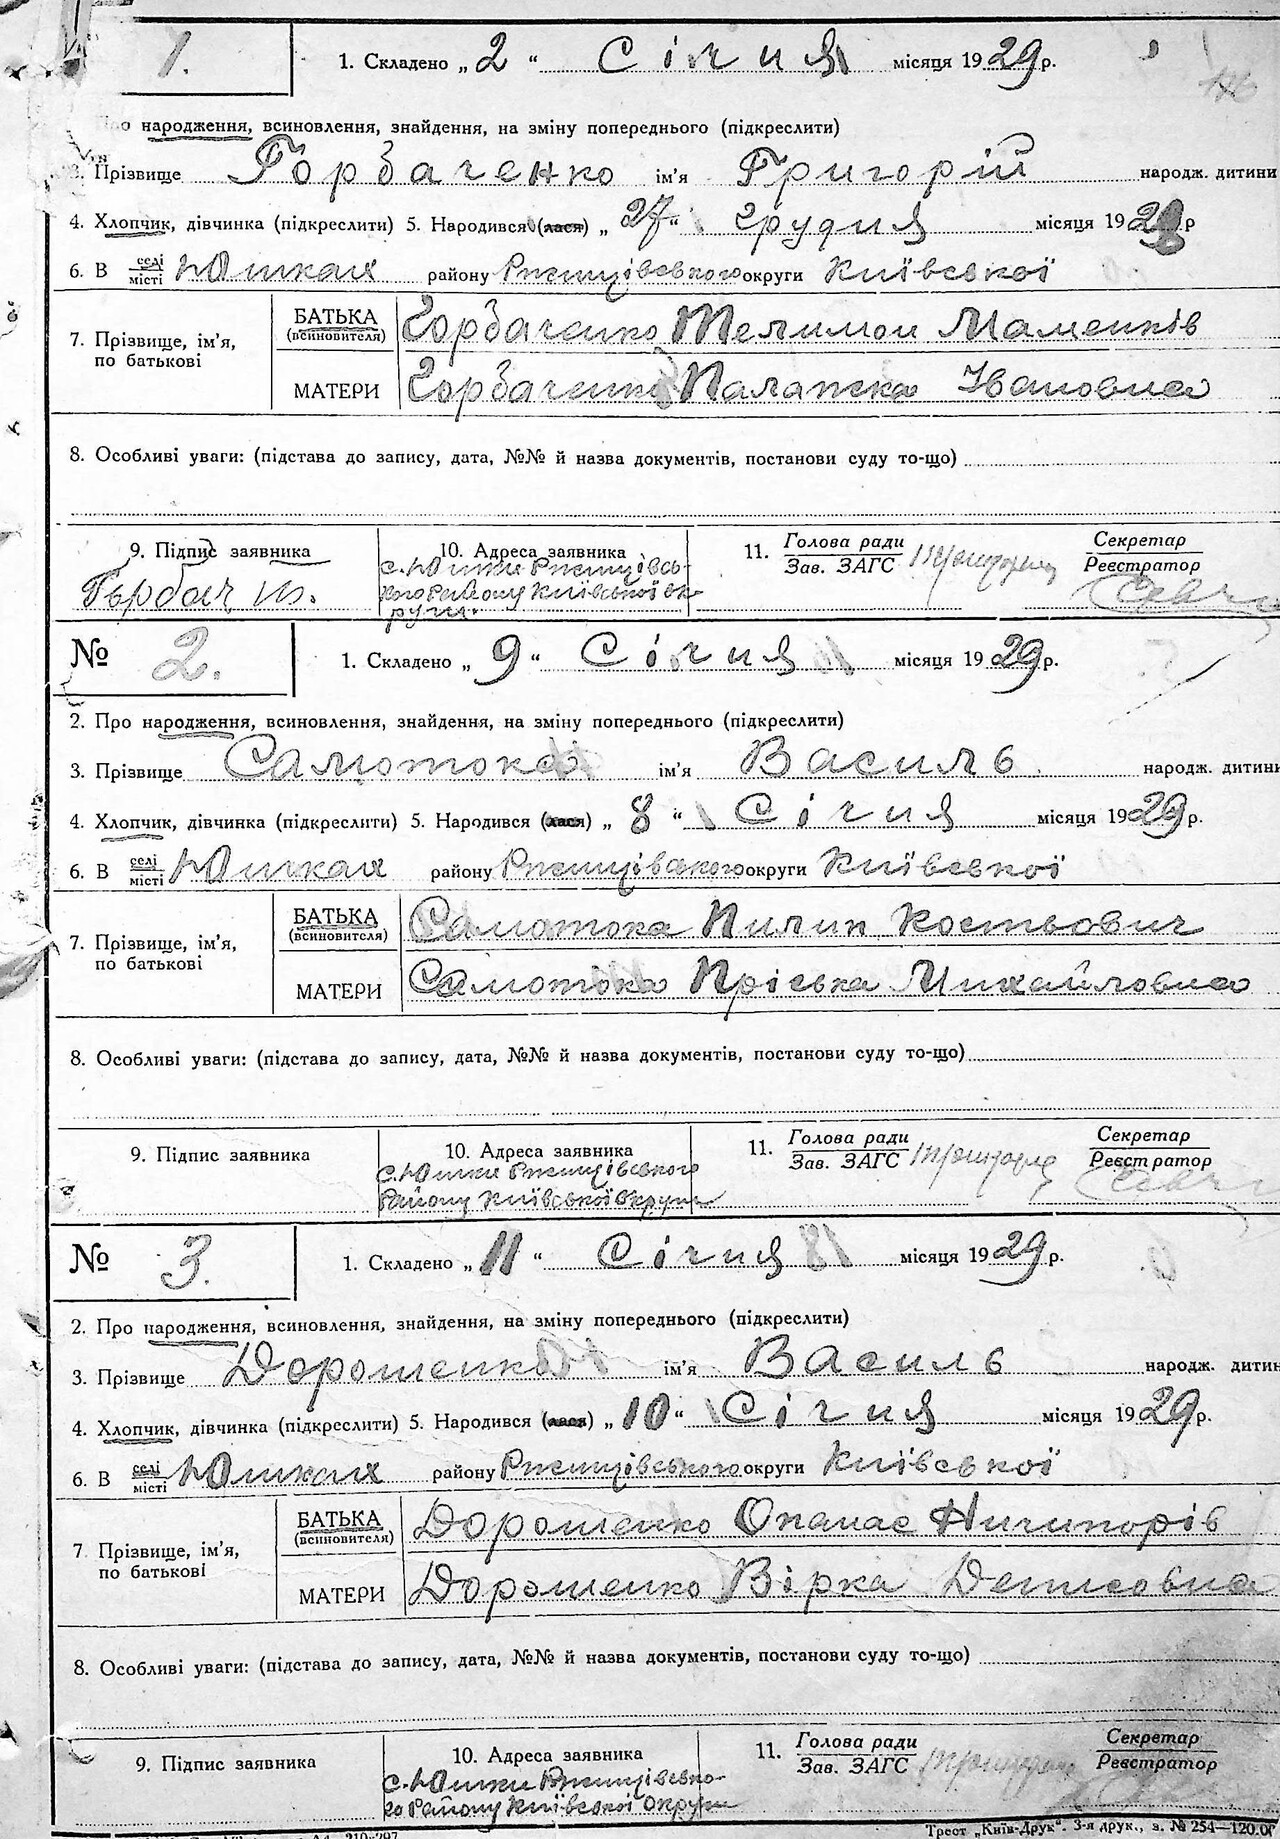 1. 1. Складено „ 2 “ Січня місяця 1929 р.
народження, всиновлення, знайдення, на зміну попереднього (підкреслити)
Прізвище Горбаченко ім'я Григорій народж. дитини
4. Хлопчик, дівчинка (підкреслити) 5. Народився (лася) „ 27 “ грудня місяця 1928 р
6. В селі/місті Юшках району Ржищівського округи Київської
7. Прізвище, ім'я, по батькові
БАТЬКА (всиновителя) Горбаченко Телимон Маменків
МАТЕРИ Горбаченко Палажка Івановна
8. Особливі уваги: (підстава до запису, дата, №№ й назва документів, постанови суду то-що)
9. Підпис заявника 10. Адреса заявника 11. Голова ради / Зав. ЗАГС Секретар / Реєстратор
Горбач
с. Юшки Ржищівсь-
кого Району Київської ок
руги.
№ 2. 1. Складено „ 9 “ Січня місяця 1929 р.
2. Про народження, всиновлення, знайдення, на зміну попереднього (підкреслити)
3. Прізвище Самотока ім'я Василь народж. дитини
4. Хлопчик, дівчинка (підкреслити) 5. Народився (лася) „ 8 “ Січня місяця 1929 р.
6. В селі/місті Юшках району Ржищівського округи Київської
7. Прізвище, ім'я, по батькові
БАТЬКА (всиновителя) Самотока Пилип Костьович
МАТЕРИ Самотока Пріська Михайловна
8. Особливі уваги: (підстава до запису, дата, №№ й назва документів, постанови суду то-що)
9. Підпис заявника 10. Адреса заявника 11. Голова ради / Зав. ЗАГС Секретар / Реєстратор
с. Юшки Ржищівського
Району Київської округи
№ 3. 1. Складено „ 11 “ Січня місяця 1929 р.
2. Про народження, всиновлення, знайдення, на зміну попереднього (підкреслити)
3. Прізвище Дорошенко ім'я Василь народж. дитин
4. Хлопчик, дівчинка (підкреслити) 5. Народився (лася) „ 10 “ Січня місяця 1929 р.
6. В селі/місті Юшках району Ржищівського округи Київської
7 Прізвище, ім'я, по батькові
БАТЬКА (всиновителя) Дорошенко Опанас Ничипорів
МАТЕРИ Дорошенко Вірка Денисовна
8. Особливі уваги: (підстава до запису, дата, №№ й назва документів, постанови суду то-що)
9. Підпис заявника 10. Адреса заявника 11. Голова ради / Зав. ЗАГС Секретар / Реєстратор
с. Юшки Ржищівсько-
го Району Київської Округи
Трест „Київ-Друк“. 3-я друк., з. № 254—120.0